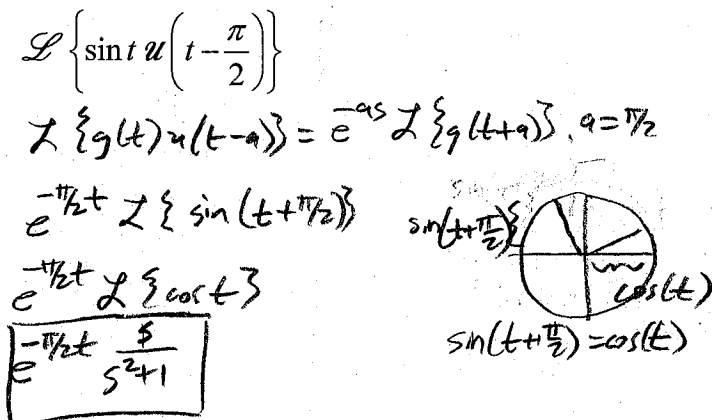 ℒ{sin t u(t − π/2)}
ℒ{g(t)u(t-a)} = e^{-as} ℒ{g(t+a)}, a = π/2
e^{-π/2t} ℒ{sin(t+π/2)}
sin(t+π/2){
e^{-π/2t} ℒ{cos t}
cos(t)
sin(t+π/2) = cos(t)
e^{-π/2t} s/(s²+1)